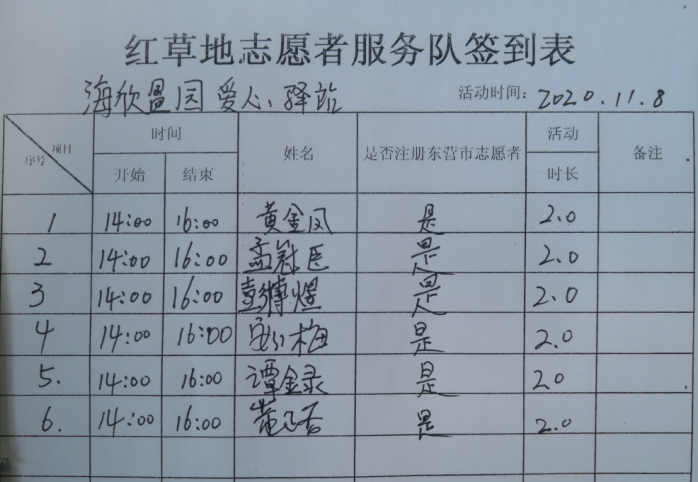 红草地志愿者服务队签到表
海欣盈园 爱心驿站 活动时间: 2020.11.8
项目 序号 时间 姓名 是否注册东营市志愿者 活动 备注
开始 结束 时长
1 14:00 16:00 黄金凤 是 2.0
2 14:00 16:00 孟冠臣 是 2.0
3 14:00 16:00 煜 是 2.0
4 14:00 16:00 梅 是 2.0
5. 14:00 16:00 谭金录 是 2.0
6. 14:00 16:00 是 2.0